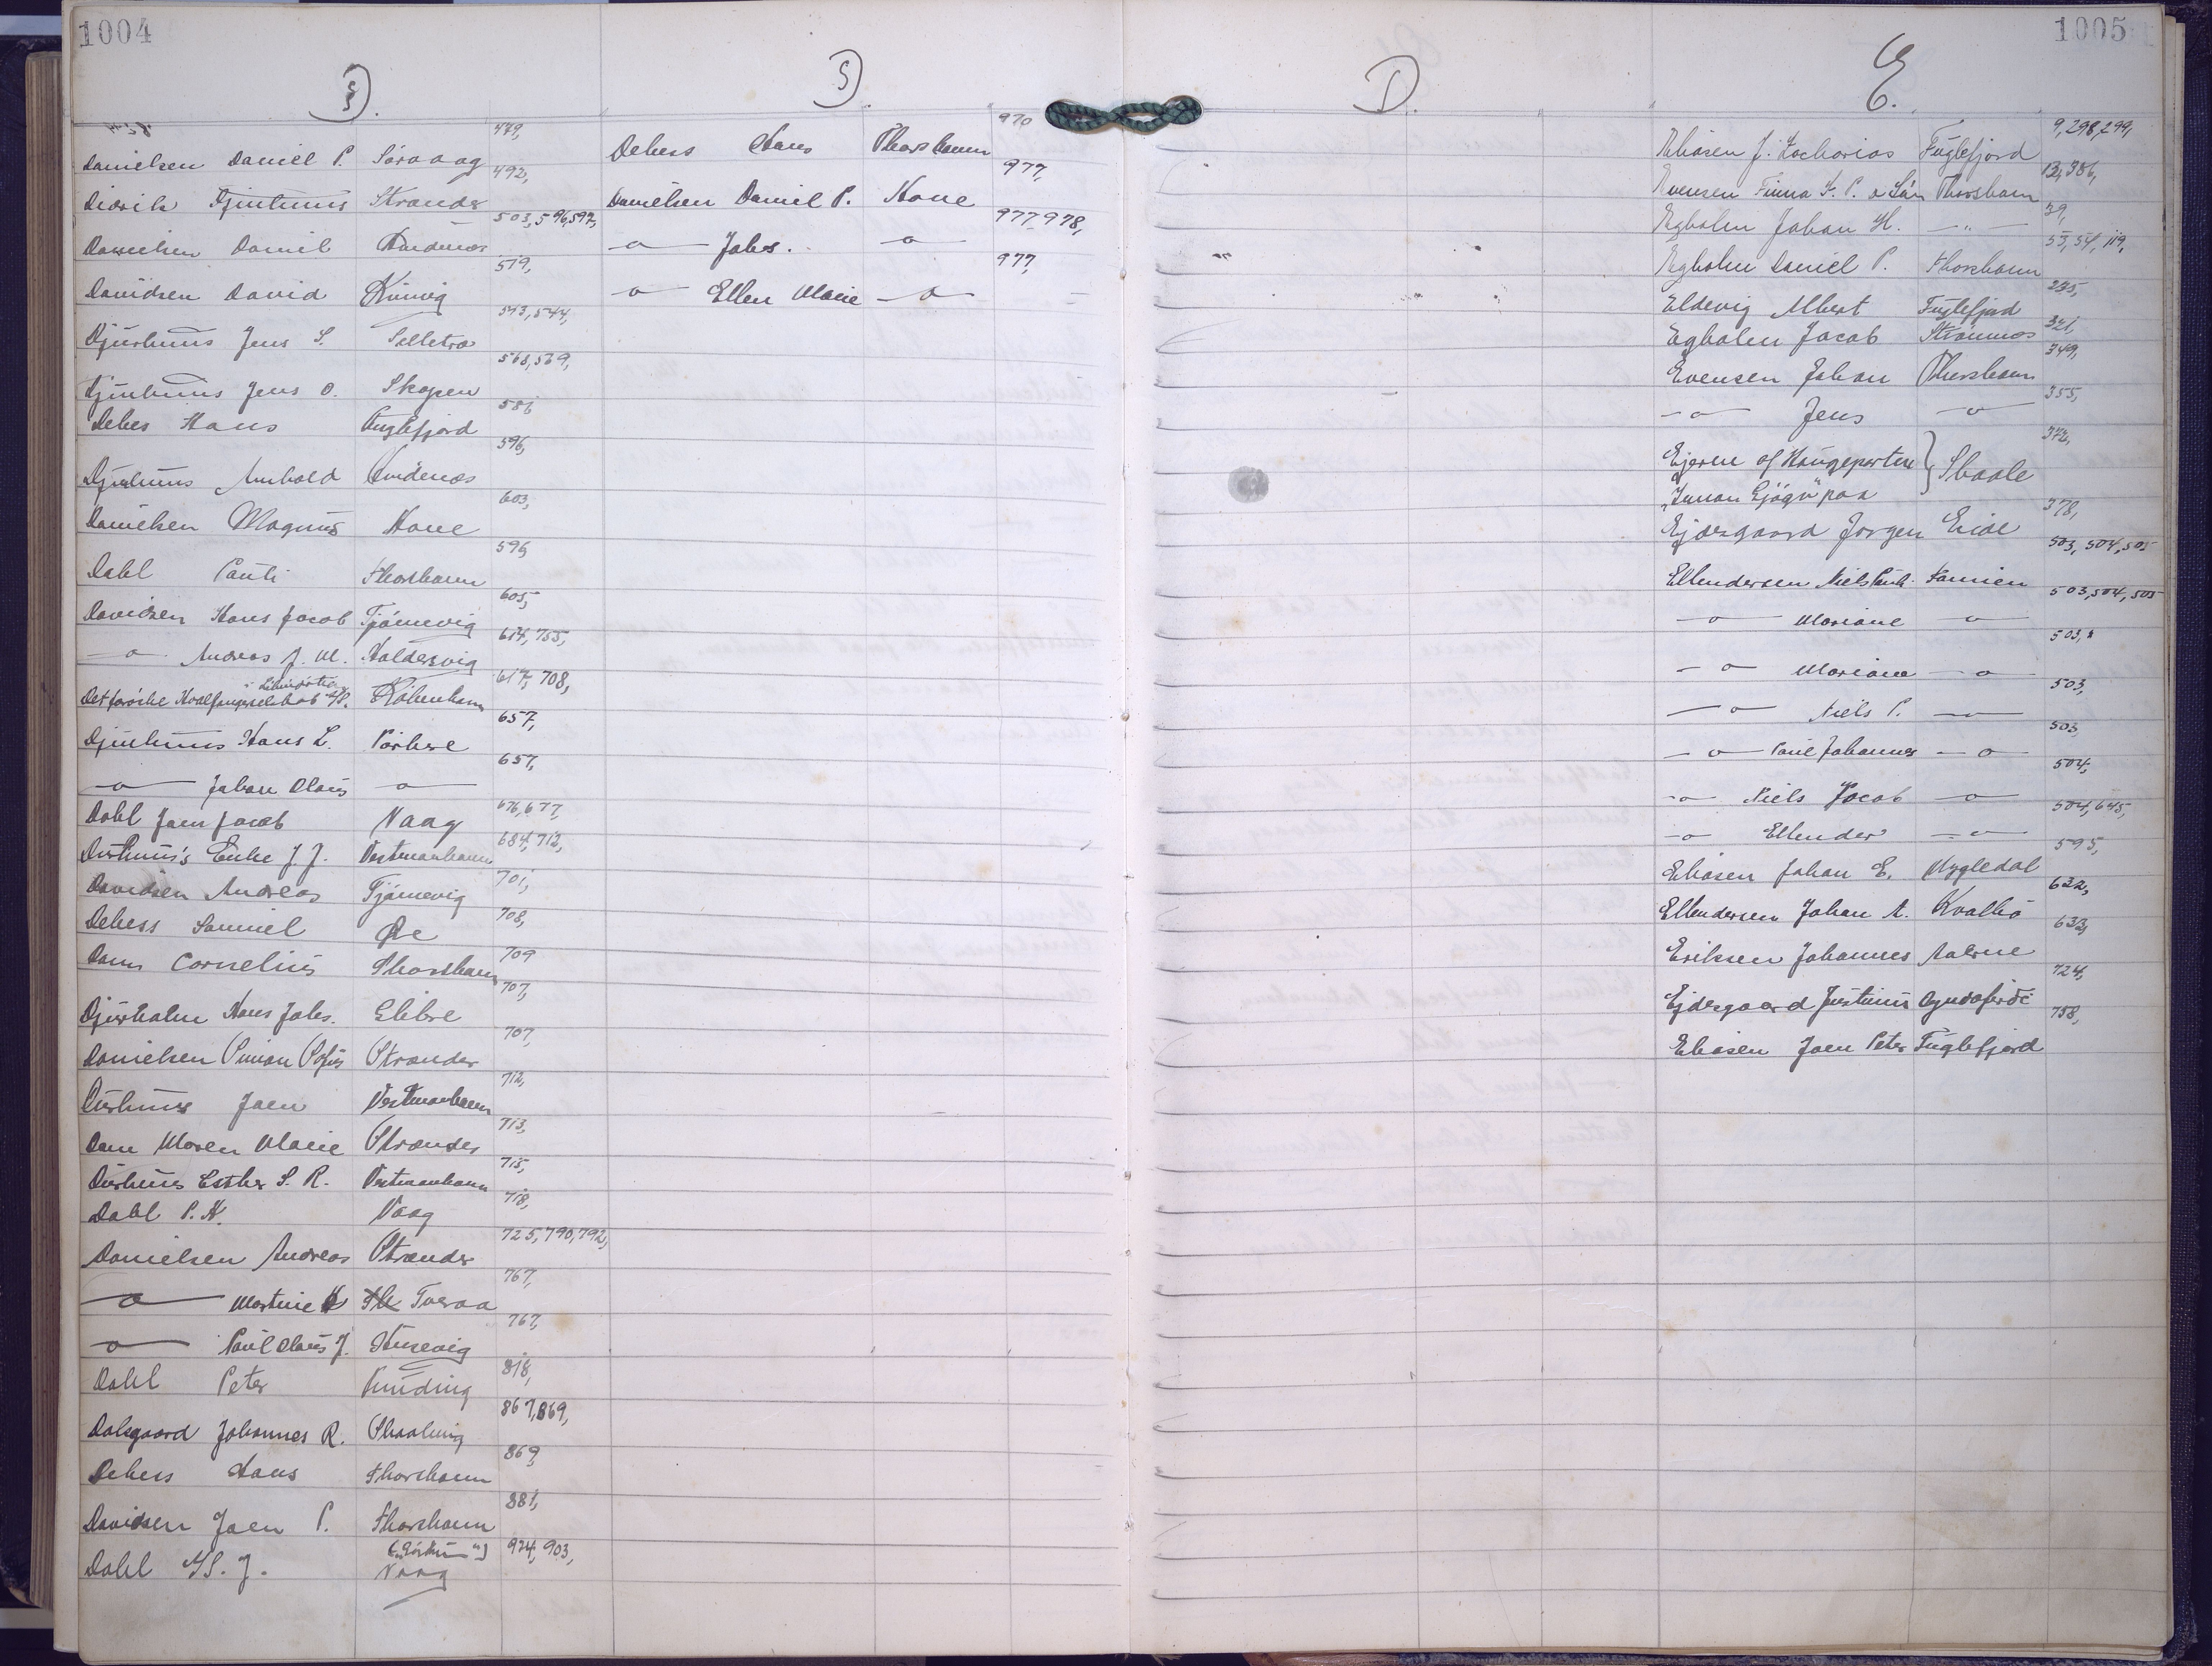 1004
D.
Danielsen Daniel P. Søraag 479,
Didrik Djurhuus Strænder 492,
Danielsen Daniel 503, 596, 597,
Davidsen David Kunvig 519,
Djurhuus Jens S. Selletræ 543, 544,
Djurhuus Jens O. Skopen 568, 569,
Debes Hans Fuglefjord 586
Djurhuus Kvidenæs 596,
Danielsen Magnus Hove 603,
Dahl Pauli Thorshavn 596,
Davidsen Hans Jacob Tjörnevig 605,
—o— Andreas J. M. Haldersvig 614, 755,
Det færöiske Hvalfangerselskab A/S. Köbenhavn 617, 708,
Djurhuus Hans L. Porkere 657,
—o— Johan Olaus —o— 657,
Dahl Joen Jacob Vaag 676, 677,
Durhuus's Enke J. J. Vestmanhavn 684, 712,
Davidsen Andreas Tjörnevig 701,
Debess Samuel Øre 708,
Dam Cornelius Thorshavn 709
Djurholm Hans Johs. Glibre 707,
Danielsen Simon Sofus Strænder 707,
Durhuus Joen Vestmanhavn 712,
Dam Maren Marie Strænder 713,
Durhuus Esther S. R. Vestmanhavn 715,
Dahl P. H. Vaag 718,
Danielsen Andreas Strænder 725, 790, 792,
—o— Martine Tveraa 767,
—o— Poul Olaus J. Husevig 767,
Dahl Peter Funding 818,
Dalsgaard Johannes R. Skaalevig 867, 869,
Debess Hans Thorshavn 869,
Davidsen Joen P. Thorshavn 881,
Dahl M. J. Vaag 924, 903,
D.
Debess Hans Thorshavn 970
Danielsen Daniel P. Hove 977,
—o— Johs. —o— 977, 978,
—o— Ellen Marie —o— 977,
1005
D.
E.
Eliasen J. Zacharias Fuglefjord 9, 298, 299,
Evensen Finna K. P. Thorshavn 12, 386,
Egholm Johan H. —„— 39,
Egholm Daniel P. Thorshavn 53, 54, 119,
Eldevig Albert Fuglefjord 245,
Egholm Jacob Strömnæs 321,
Evensen Johan Thorshavn 349,
—o— Jens —o— 355,
Ejerne af Haugepartene } Skaale 372,
„Innan Gjógv" paa
Ejdesgaard Jörgen Eide 378,
Ellendersen Niels Paul. Famien 503, 504, 505
—o— Mariane —o— 503, 504, 505
—o— Mariane —o— 503,
—o— Niels P. —o— 503,
—o— Poul Johannes —o— 503,
—o— Niels Jacob —o— 504,
—o— Ellender —o— 504, 645,
Eliasen Johan E. Mygledal 595,
Ellendersen Johan A. Kvalbö 632,
Eriksen Johannes Æalrne 632,
Ejdesgaard Justinus Oyndafirdi 724,
Eliasen Joen Peter Fuglefjord 758,